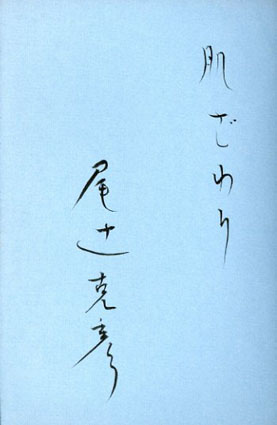 肌ざわり
尾辻克彦